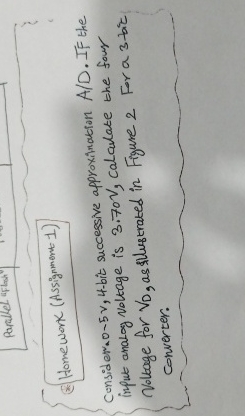 Parallel
* Homework (Assignment 1)
Consider a 0-5V, 4-bit successive approximation A/D. If the
input analog voltage is 3.70V, calculate the four
Voltage for VD, as illustrated in Figure 2 For a 3-bit
Converter.